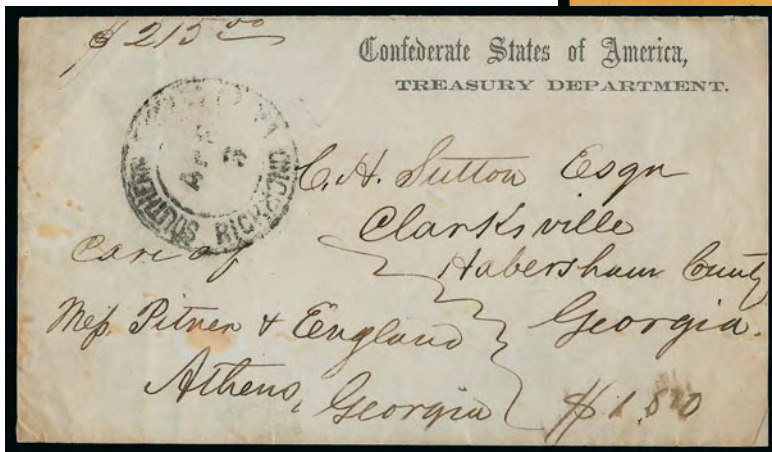 $215 00
Confederate States of America,
TREASURY DEPARTMENT.
SOUTHERN
RICHMOND
C. H. Sutton Esqr
Clarksville
Care of
Habersham County
Mess. Pitner & England
Georgia.
Athens, Georgia
$1.50